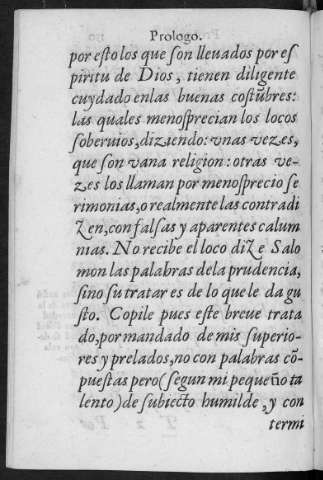 Prologo.
por esto los que son lleuados por es
piritu de Dios, tienen diligente
cuydado enlas buenas costũbres:
las quales menosprecian los locos
soberuios, diziendo: vnas vezes,
que son vana religion: otras ve-
zes los llaman por menosprecio se
rimonias, o realmente las contradi
zen, con falsas y aparentes calum
nias. No recibe el loco dize Salo
mon las palabras dela prudencia,
sino su tratar es de lo que le da gu
sto. Copile pues este breue trata
do, por mandado de mis superio-
res y prelados, no con palabras cõ-
puestas pero (segun mi pequeño ta
lento) de subiecto humilde, y con
termi